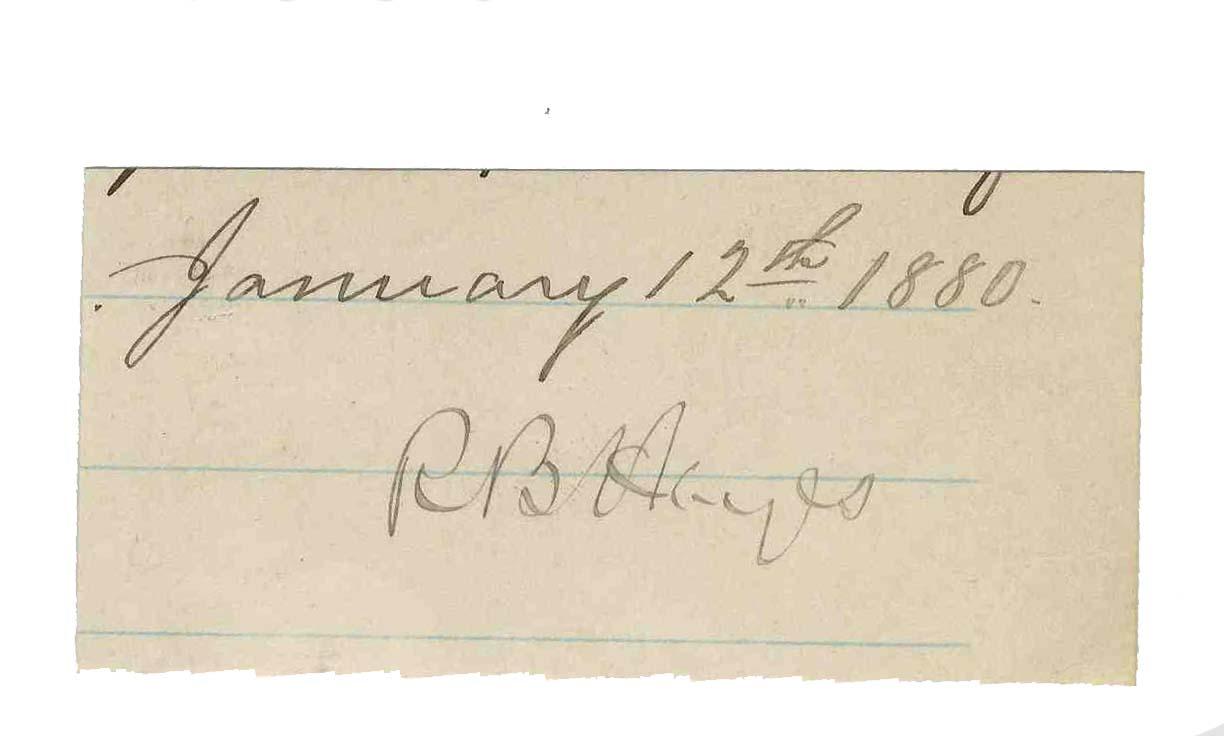 January 12th 1880.
R B Hayes